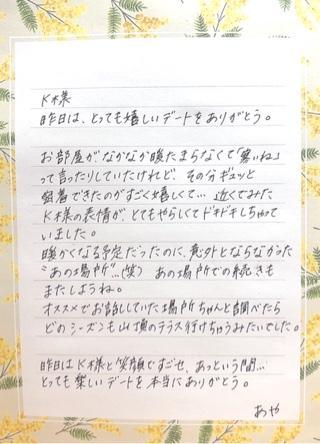 K様
昨日は、とっても嬉しいデートをありがとう。
お部屋がなかなか暖たまらなくて「寒いね」
って言ったりしていたけれど、その分ギュッと
密着できたのがすごく嬉しくて… 近くでみた
K様の表情が、とてもやらしくてドキドキしちゃって
いました。
暖かくなる予定だったのに、意外とならなかった
"あの場所"…(笑) あの場所での続きも
またしようね。
オススメでお話ししていた場所ちゃんと調べたら
どのシーズンも山頂のテラス行けちゃうみたいでした。
昨日はK様と笑顔ですごせ、あっという間…
とっても楽しいデートを本当にありがとう。
あや